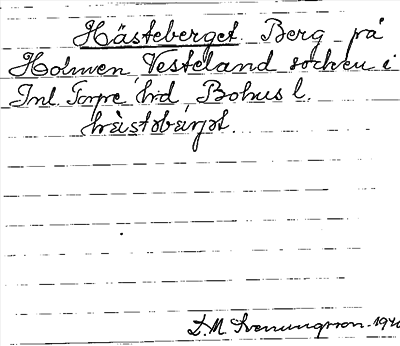 Hästeberget. Berg på
Holmen, Vesteland socken i
Inl. Torpe hrd, Bohus l.
hästəbärjət.
D. M. Svenungsson. 194